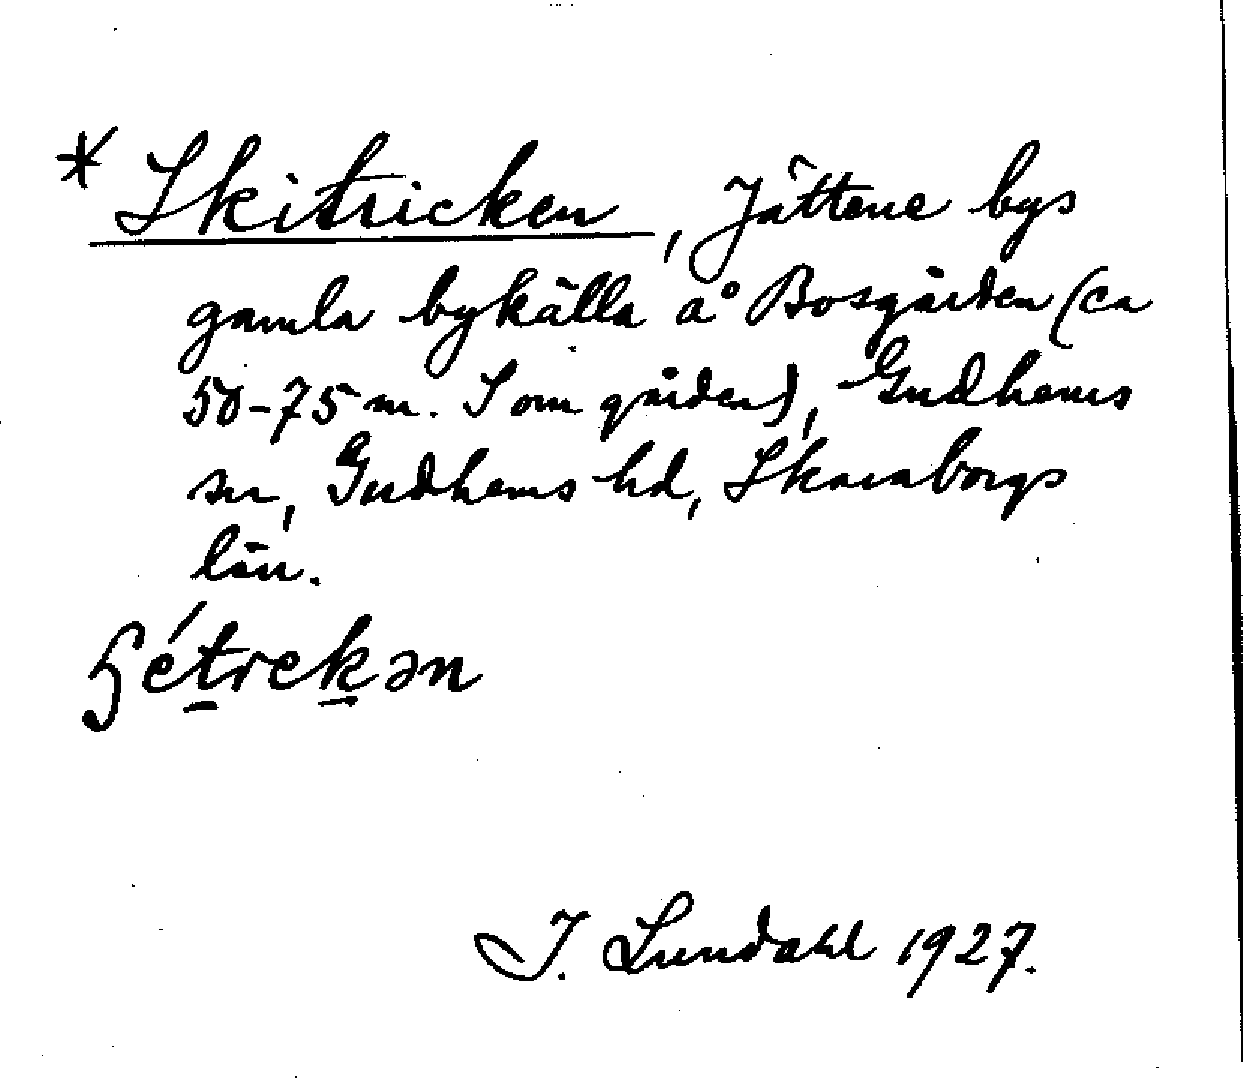 * Skitricken, Jättene bys
gamla bykälla å Bosgården (ca
50-75 m. S om gården), Gudhems
sn, Gudhems hd, Skaraborgs
län.
ʃétrekən
I. Lundahl 1927.